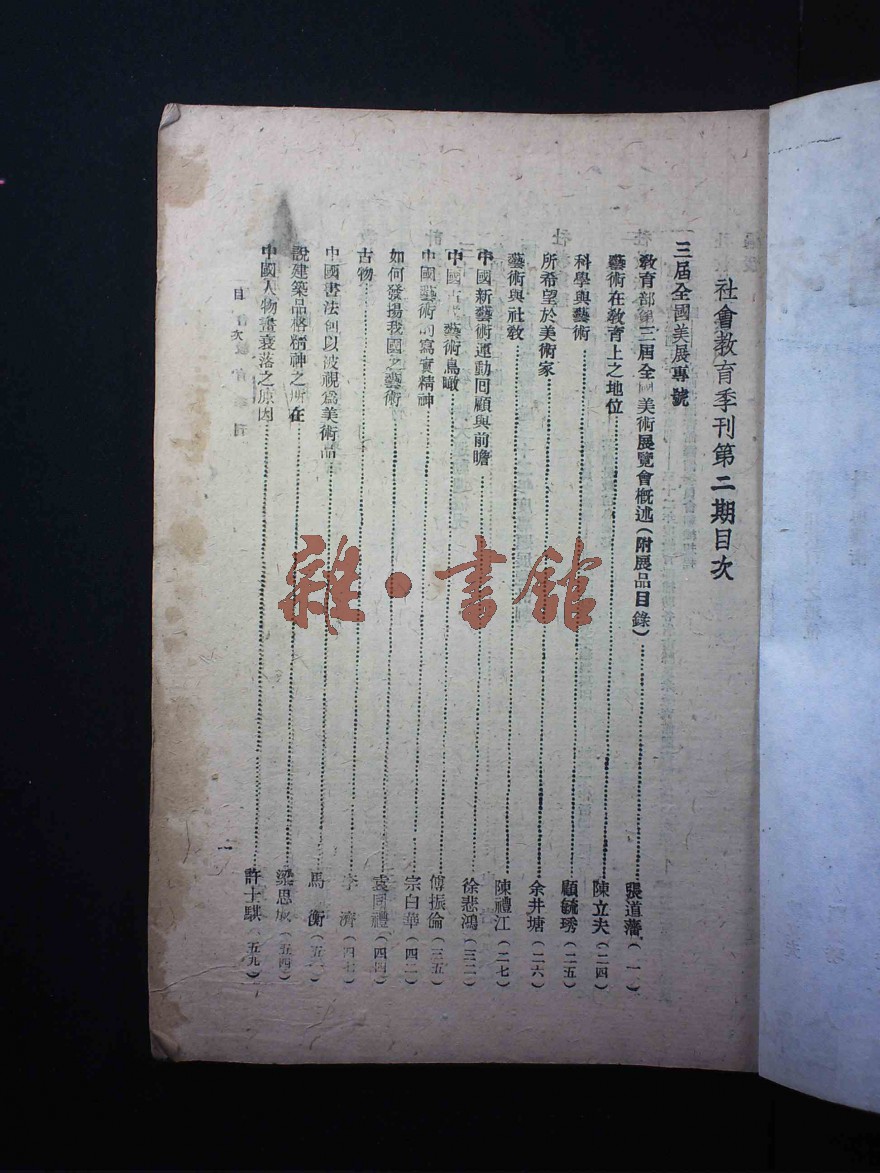 社會教育季刊第二期目次
三屆全國美展專號
教育部第三屆全國美術展覽會概述(附展品目錄)…張道藩(一)
藝術在教育上之地位…陳立夫(二四)
科學與藝術…顧毓琇(二五)
所希望於美術家…余井塘(二六)
藝術與社教…陳禮江(二七)
中國新藝術運動回顧與前瞻…徐悲鴻(三二)
中國古代藝術鳥瞰…傅振倫(三五)
中國藝術的寫實精神…宗白華(四二)
如何發揚我國之藝術…袁同禮(四四)
古物…李濟(四七)
中國書法何以被視為美術品…馬衡(五一)
說建築品格精神之所在…梁思成(五四)
中國人物畫衰落之原因…許士騏(五九)
目次
一
雜·書館